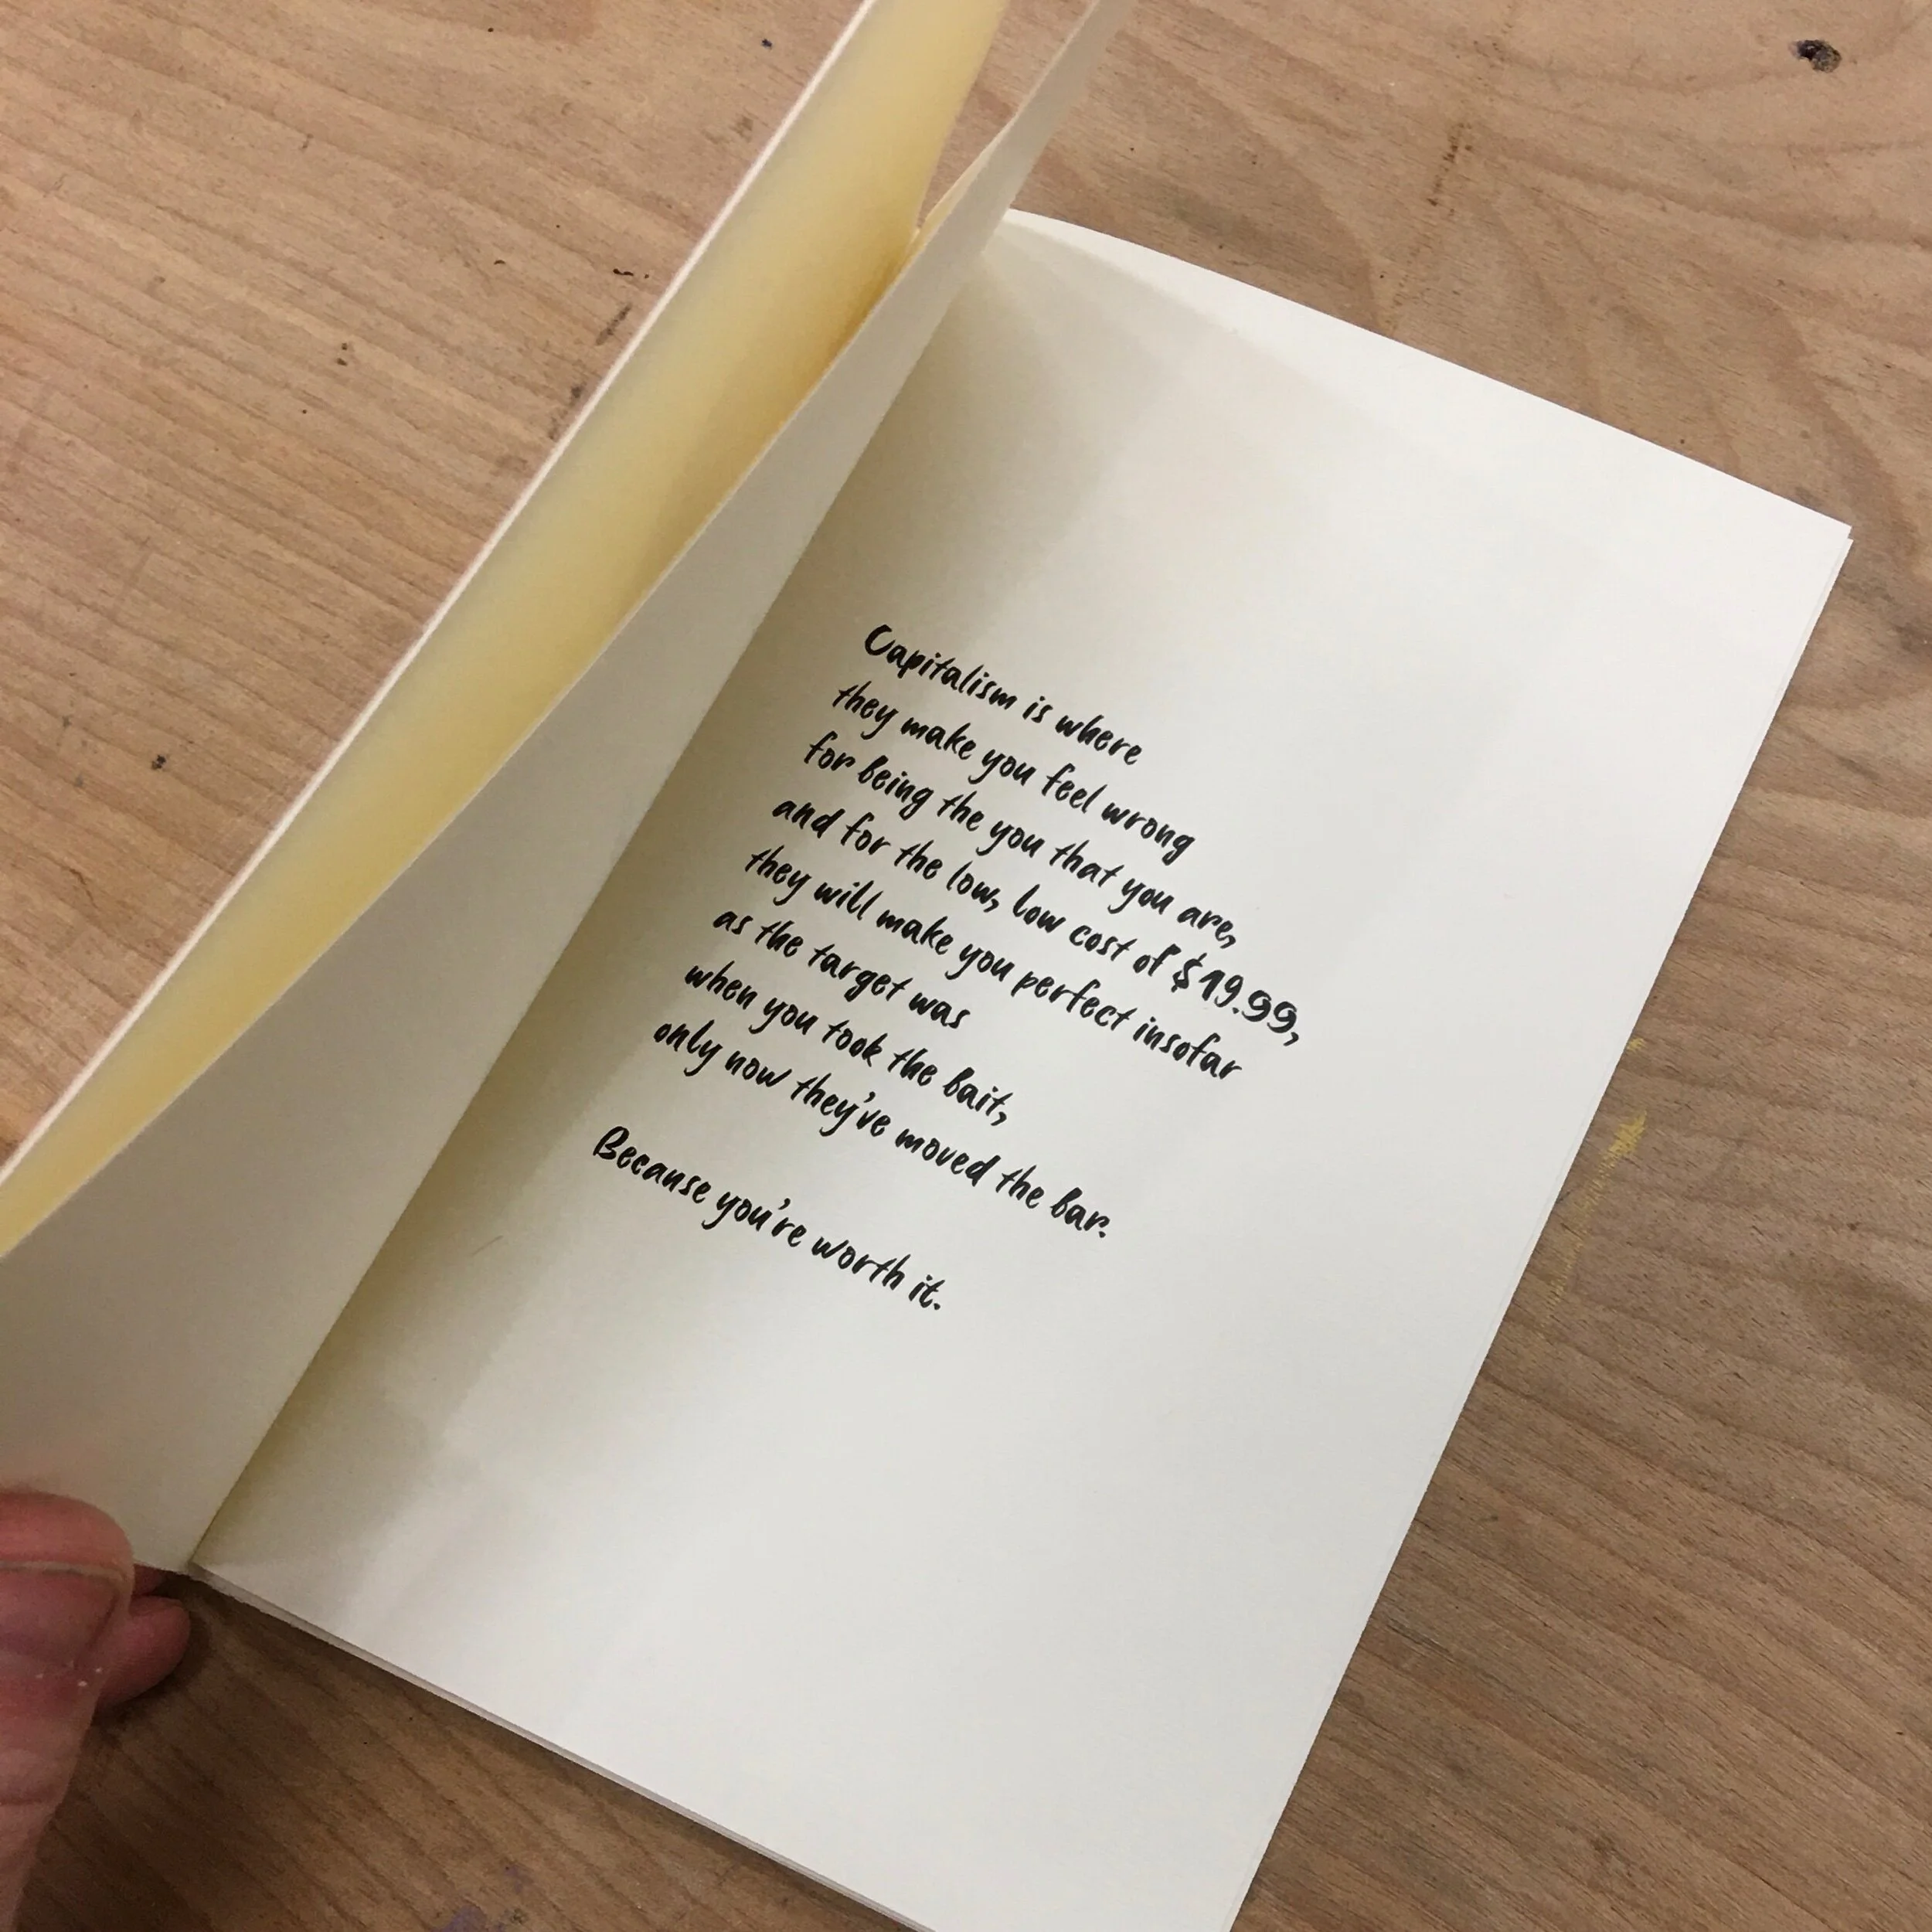 Capitalism is where
they make you feel wrong
for being the you that you are,
and for the low, low cost of $19.99,
they will make you perfect insofar
as the target was
when you took the bait,
only now they've moved the bar.
Because you're worth it.